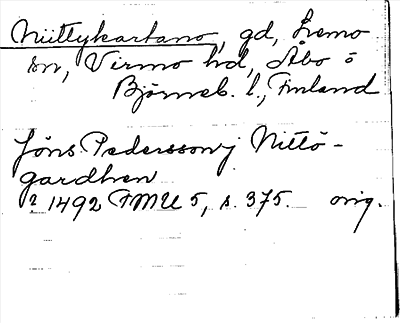 Niittykartano, gd, Lemo
sn, Virmo hd, Åbo o
Björneb. l., Finland
Jöns Pederssonj Nittö-
gardhen
? 1492 FMU 5, s. 375. orig.